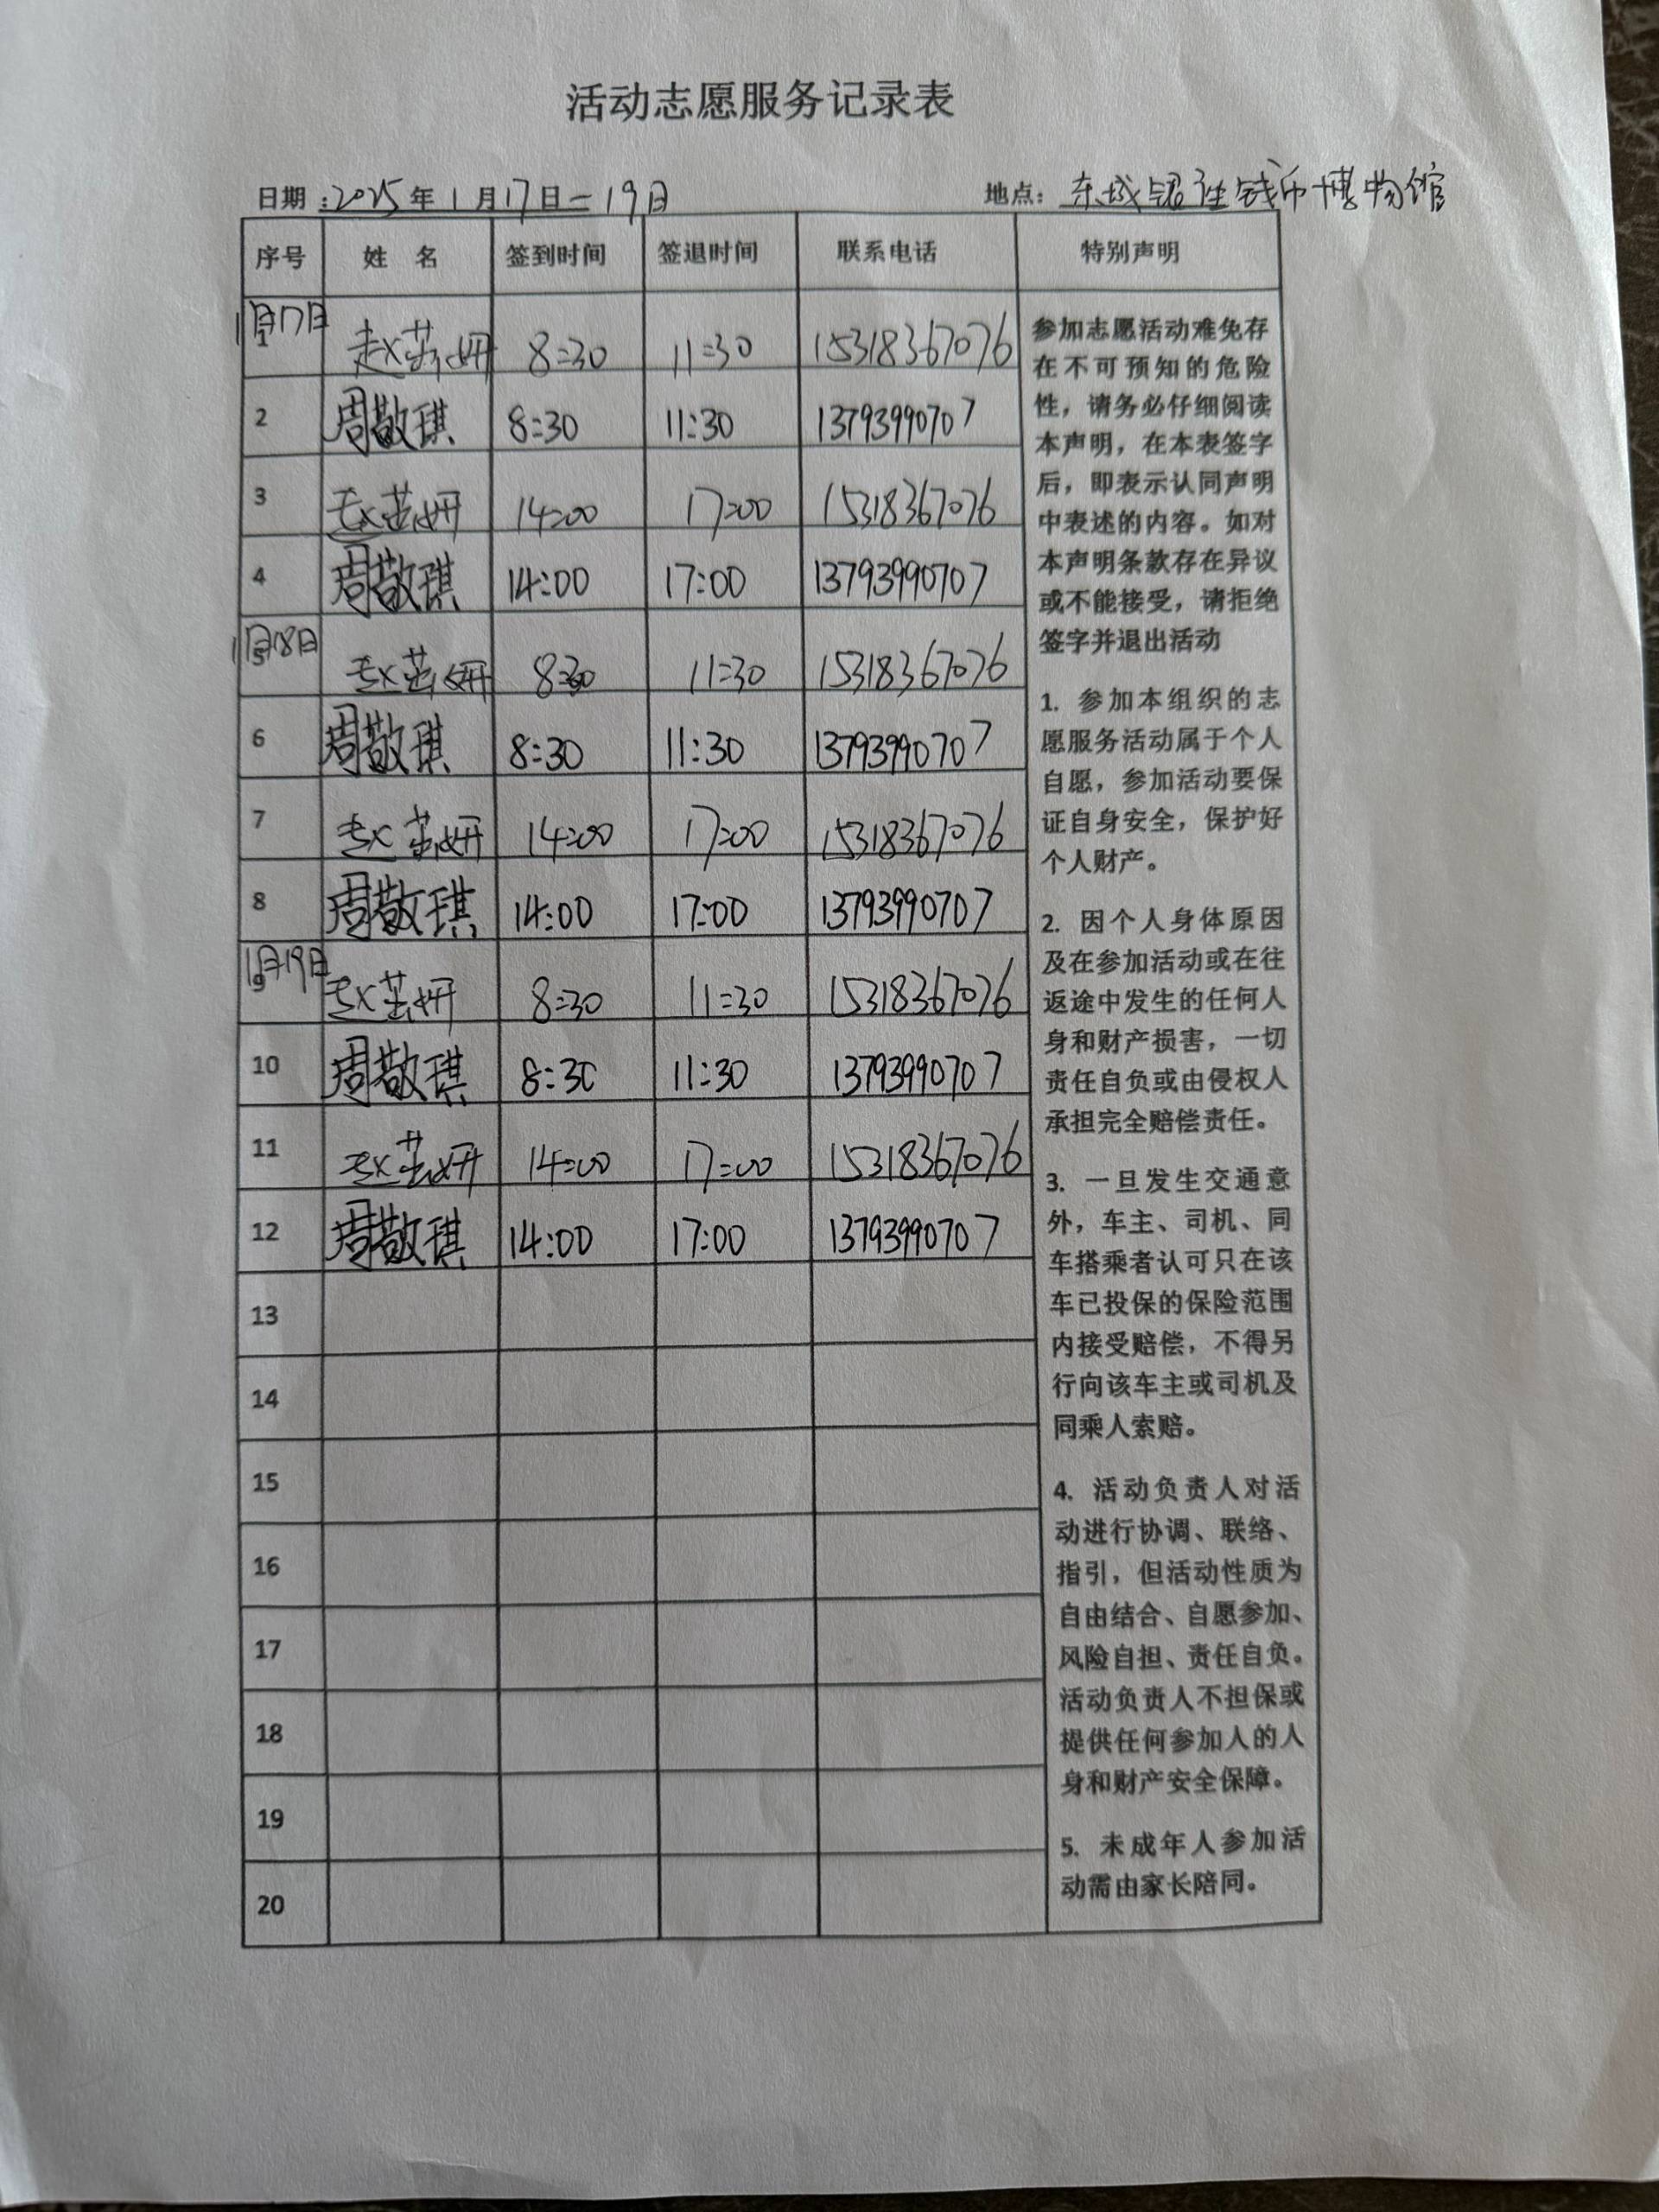 活动志愿服务记录表
日期：2025年1月17日—19日 地点：东城银座钱币博物馆
序号 姓 名 签到时间 签退时间 联系电话 特别声明
1月17日
1 赵茁妍 8:30 11:30 15318367076
2 周敬琪 8:30 11:30 13793990707
3 赵茁妍 14:00 17:00 15318367076
4 周敬琪 14:00 17:00 13793990707
1月18日
5 赵茁妍 8:30 11:30 15318367076
6 周敬琪 8:30 11:30 13793990707
7 赵茁妍 14:00 17:00 15318367076
8 周敬琪 14:00 17:00 13793990707
1月19日
9 赵茁妍 8:30 11:30 15318367076
10 周敬琪 8:30 11:30 13793990707
11 赵茁妍 14:00 17:00 15318367076
12 周敬琪 14:00 17:00 13793990707
13
14
15
16
17
18
19
20
参加志愿活动难免存
在不可预知的危险
性，请务必仔细阅读
本声明，在本表签字
后，即表示认同声明
中表述的内容。如对
本声明条款存在异议
或不能接受，请拒绝
签字并退出活动
1. 参加本组织的志
愿服务活动属于个人
自愿，参加活动要保
证自身安全，保护好
个人财产。
2. 因个人身体原因
及在参加活动或在往
返途中发生的任何人
身和财产损害，一切
责任自负或由侵权人
承担完全赔偿责任。
3. 一旦发生交通意
外，车主、司机、同
车搭乘者认可只在该
车已投保的保险范围
内接受赔偿，不得另
行向该车主或司机及
同乘人索赔。
4. 活动负责人对活
动进行协调、联络、
指引，但活动性质为
自由结合、自愿参加、
风险自担、责任自负。
活动负责人不担保或
提供任何参加人的人
身和财产安全保障。
5. 未成年人参加活
动需由家长陪同。